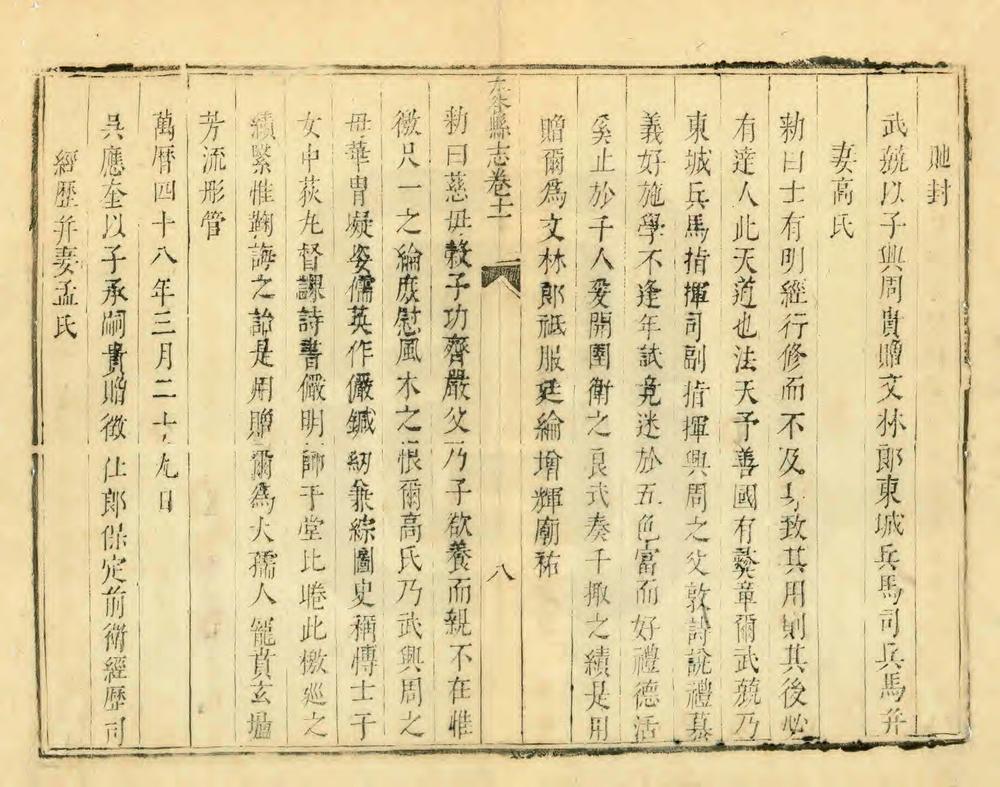 貤封
武兢以子興周貴贈文林郎東城兵馬司兵馬并
妻高氏
勑曰士有明經行修而不及身致其用則其後必
有達人此天道也法天予善國有彝章爾武兢乃
東城兵馬指揮司副指揮興周之父敦詩說禮慕
義好施學不逢年試竟迷於五色富而好禮德活
奚止於千人爰開圉衛之良式奏干掫之績是用
贈爾爲文林郎祗服廷綸增輝廟祐
縣志卷十一
八
勑曰慈母穀子功齊嚴父乃子欲養而親不在惟
徼尺一之綸庶慰風木之恨爾高氏乃武興周之
母華胄凝姿儒英作儷鍼紉兼綜圖史稱慱士于
女中荻丸督課詩書儼明師于堂比睠此檄廵之
績繄惟鞠誨之詒是用贈爾爲大孺人寵賁玄壚
芳流彤管
萬曆四十八年三月二十九日
吳應奎以子承嗣貴贈徵仕郎保定前衛經歷司
經歷并妻孟氏